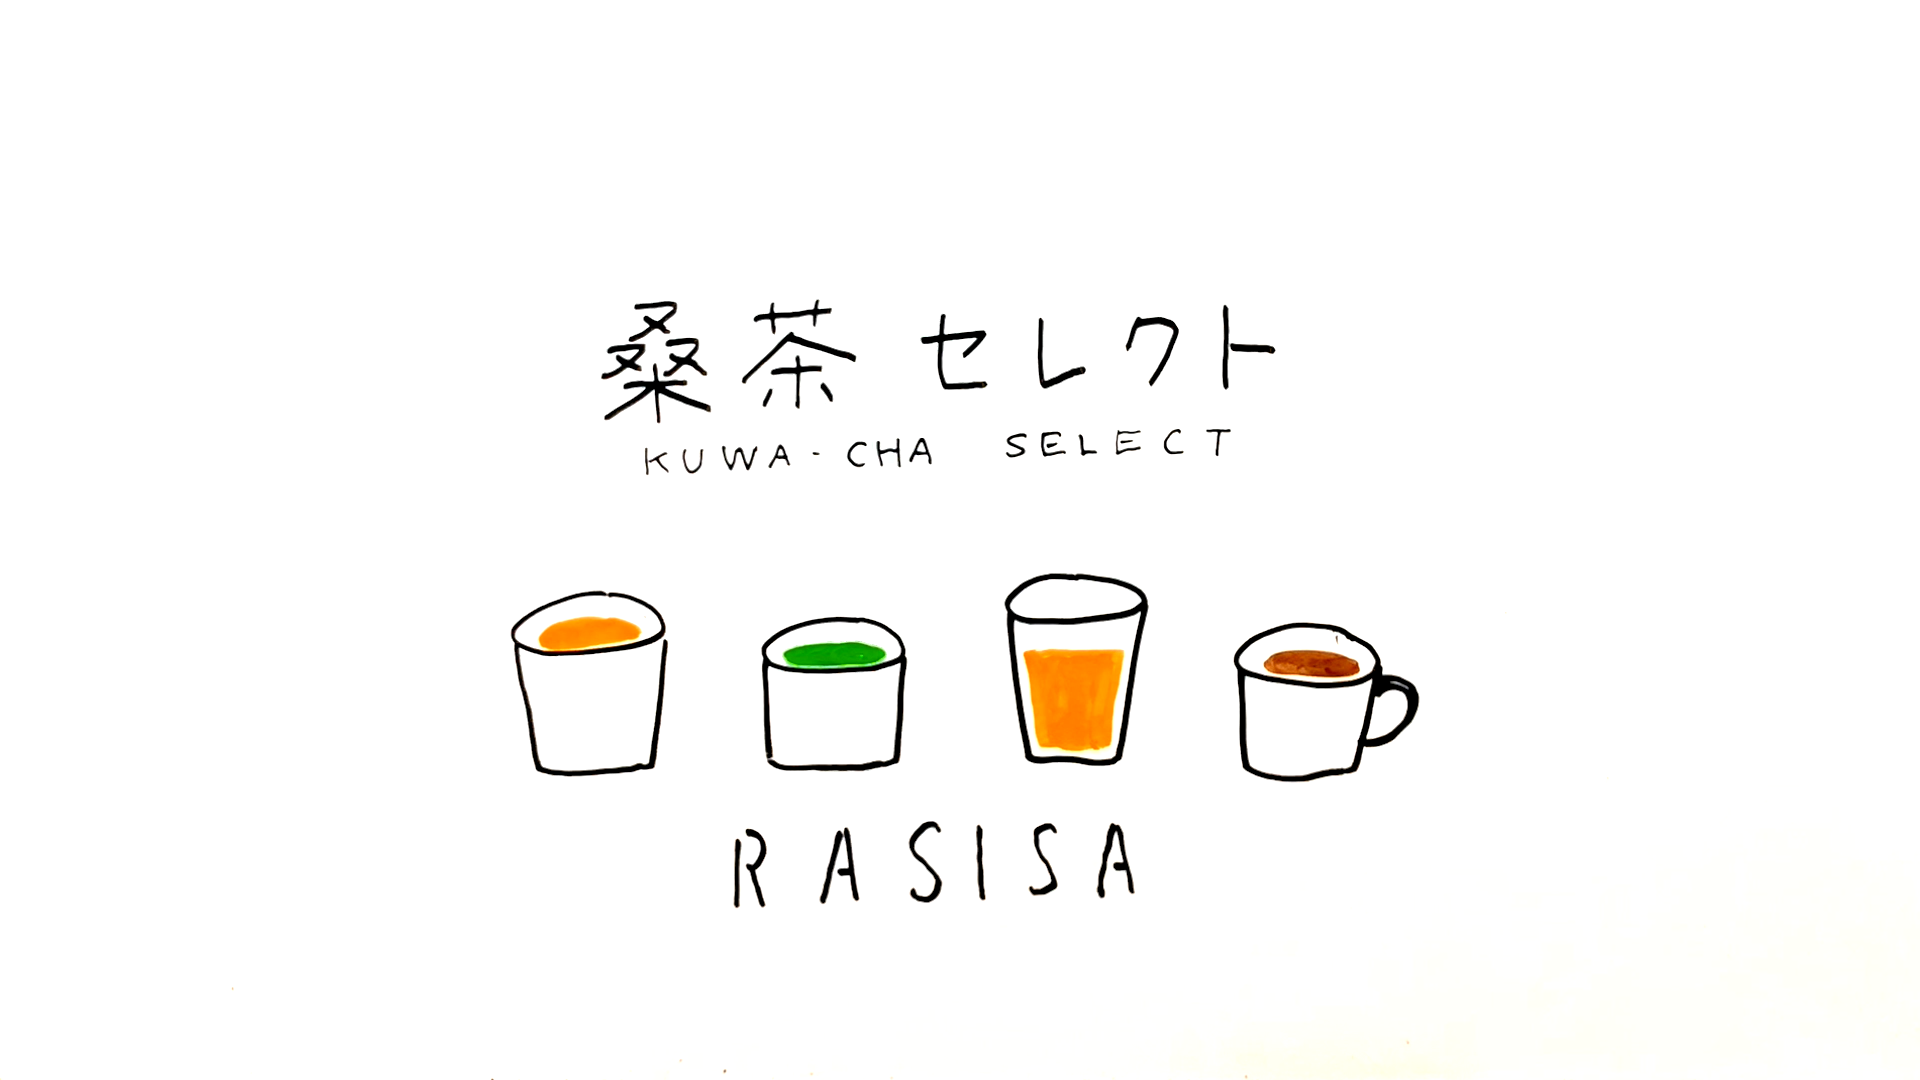 桑茶セレクト
KUWA-CHA SELECT
RASISA